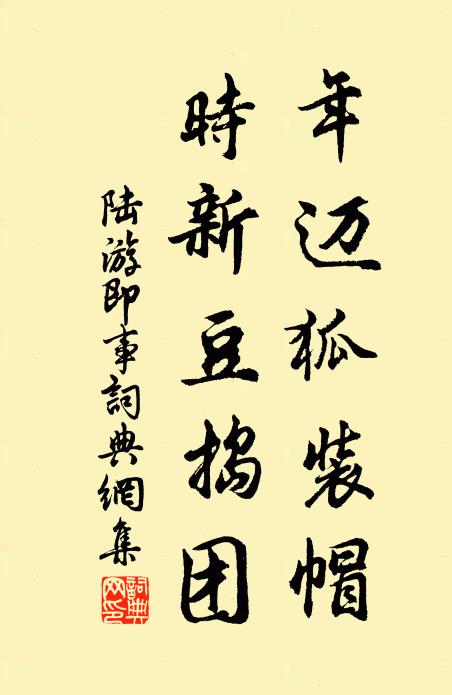 年迈狐装帽
時新豆捣团
陆游即事詞典網集
詞典網印